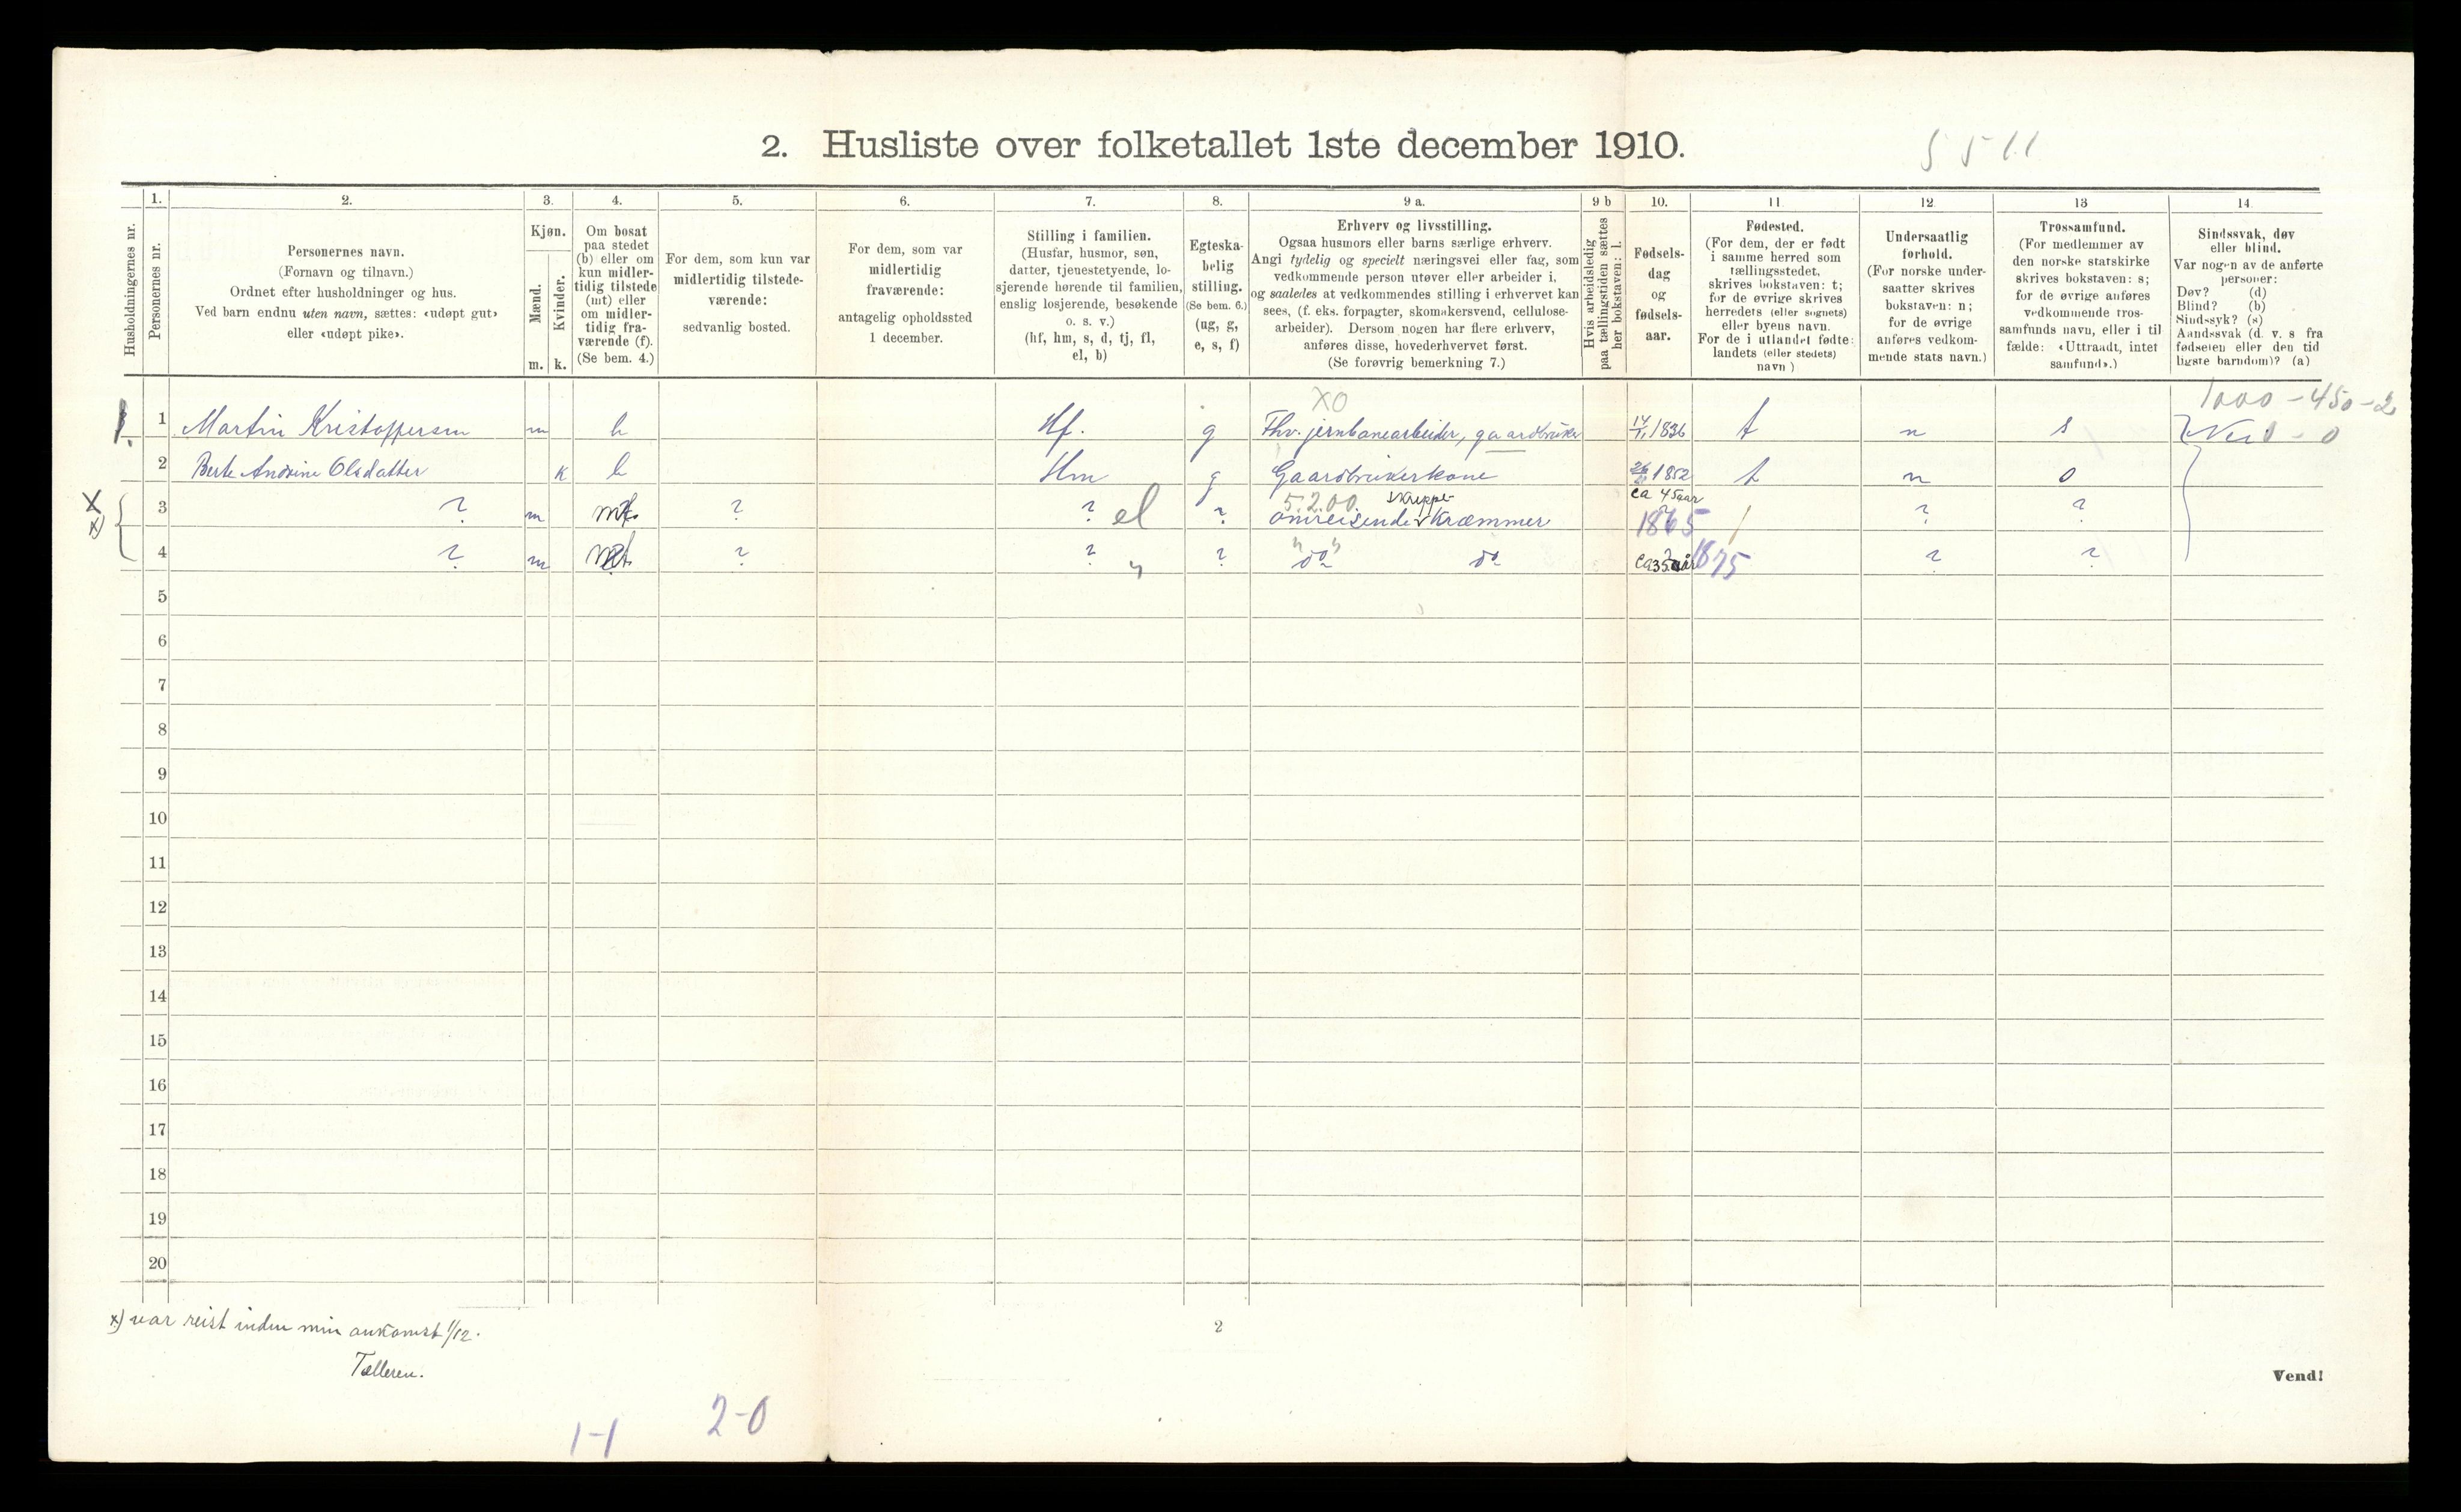 2. Husliste over folketallet 1ste december 1910.
5 5 11
Husholdningernes nr.
1. Personernes nr.
2. Personernes navn.
(Fornavn og tilnavn.)
Ordnet efter husholdninger og hus.
Ved barn endnu uten navn, sættes: «udøpt gut»
eller «udøpt pike».
3. Kjøn.
Mænd. m.
Kvinder. k.
4. Om bosat
paa stedet
(b) eller om
kun midler-
tidig tilstede
(mt) eller
om midler-
tidig fra-
værende (f).
(Se bem. 4.)
5. For dem, som kun var
midlertidig tilstede-
værende:
sedvanlig bosted.
6. For dem, som var
midlertidig
fraværende:
antagelig opholdssted
1 december.
7. Stilling i familien.
(Husfar, husmor, søn,
datter, tjenestetyende, lo-
sjerende hørende til familien,
enslig losjerende, besøkende
o. s. v.)
(hf, hm, s, d, tj, fl,
el, b)
8. Egteska-
belig
stilling.
(Se bem. 6.)
(ug, g,
e, s, f)
9 a. Erhverv og livsstilling.
Ogsaa husmors eller barns særlige erhverv.
Angi tydelig og specielt næringsvei eller fag, som
vedkommende person utøver eller arbeider i,
og saaledes at vedkommendes stilling i erhvervet kan
sees, (f. eks. forpagter, skomakersvend, cellulose-
arbeider). Dersom nogen har flere erhverv,
anføres disse, hovederhvervet først.
(Se forøvrig bemerkning 7.)
9 b Hvis arbeidsledig
paa tællingstiden sættes
her bokstaven: l.
10. Fødsels-
dag
og
fødsels-
aar.
11 Fødested.
(For dem, der er født
i samme herred som
tællingsstedet,
skrives bokstaven: t;
for de øvrige skrives
herredets (eller sognets)
eller byens navn.
For de i utlandet fødte:
landets (eller stedets)
navn)
12 Undersaatlig
forhold.
(For norske under-
saatter skrives
bokstaven: n;
for de øvrige
anføres vedkom-
mende stats navn.)
13 Trossamfund.
(For medlemmer av
den norske statskirke
skrives bokstaven: s;
for de øvrige anføres
vedkommende tros-
samfunds navn, eller i til
fælde: «Uttraadt, intet
samfund».)
14 Sindssvak, døv
eller blind.
Var nogen av de anførte
personer:
Døv? (d)
Blind? (b)
Sindssyk? (s)
Aandssvak (d. v. s fra
fødselen eller den tid
ligste barndom)? (a)
XO 1000 - 450 - 2
1. 1 Martin Kristoffersen m b Hf. g Fhv. jernbanearbeider, gaardbruker 1836 t n s Nei 0 - 0
2 Berte Andrine Olsdatter k b Hm g Gaardbrukerkone 1852 t n
5.200. Skreppe- ca 45 aar
X x) 3 ? m mt ? ? el ? omreisende Kræmmer 1865 ? ?
4 ? m mt ? ? " ? do do ca 35 aar 1875 ? ?
5
6
7
8
9
10
11
12
13
14
15
16
17
18
19
20
x) var reist inden min ankomst 1/12.
Tælleren.
2
Vend!
1-1 2-0